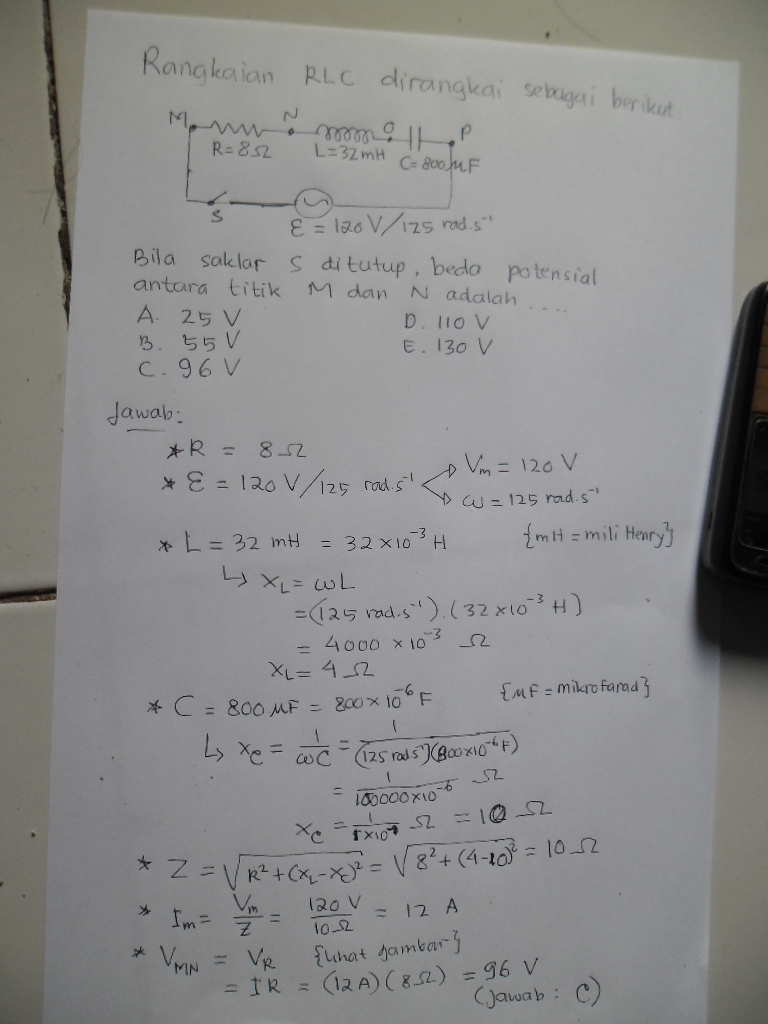 Rangkaian RLC dirangkai sebagai berikut.
M N O P
R=8Ω L=32mH C=800μF
S
Ɛ = 120 V/125 rad.s⁻¹
Bila saklar S ditutup, beda potensial
antara titik M dan N adalah ....
A. 25 V D. 110 V
B. 55 V E. 130 V
C. 96 V
Jawab:
* R = 8 Ω
* Ɛ = 120 V/125 rad.s⁻¹ → Vm = 120 V
→ ω = 125 rad.s⁻¹
* L = 32 mH = 32×10⁻³ H {mH = mili Henry}
↳ XL = ωL
= (125 rad.s⁻¹).(32×10⁻³ H)
= 4000 × 10⁻³ Ω
XL = 4 Ω
* C = 800 μF = 800×10⁻⁶ F {μF = mikrofarad}
↳ Xc = 1/ωC = 1/(125 rad s⁻¹)(800×10⁻⁶ F)
= 1/100000×10⁻⁶ Ω
Xc = 1/1×10⁻¹ Ω = 10 Ω
* Z = √R²+(XL-Xc)² = √8²+(4-10)² = 10 Ω
* Im = Vm/Z = 120 V/10 Ω = 12 A
* VMN = VR {lihat gambar}
= I R = (12A)(8Ω) = 96 V
(jawab : C)